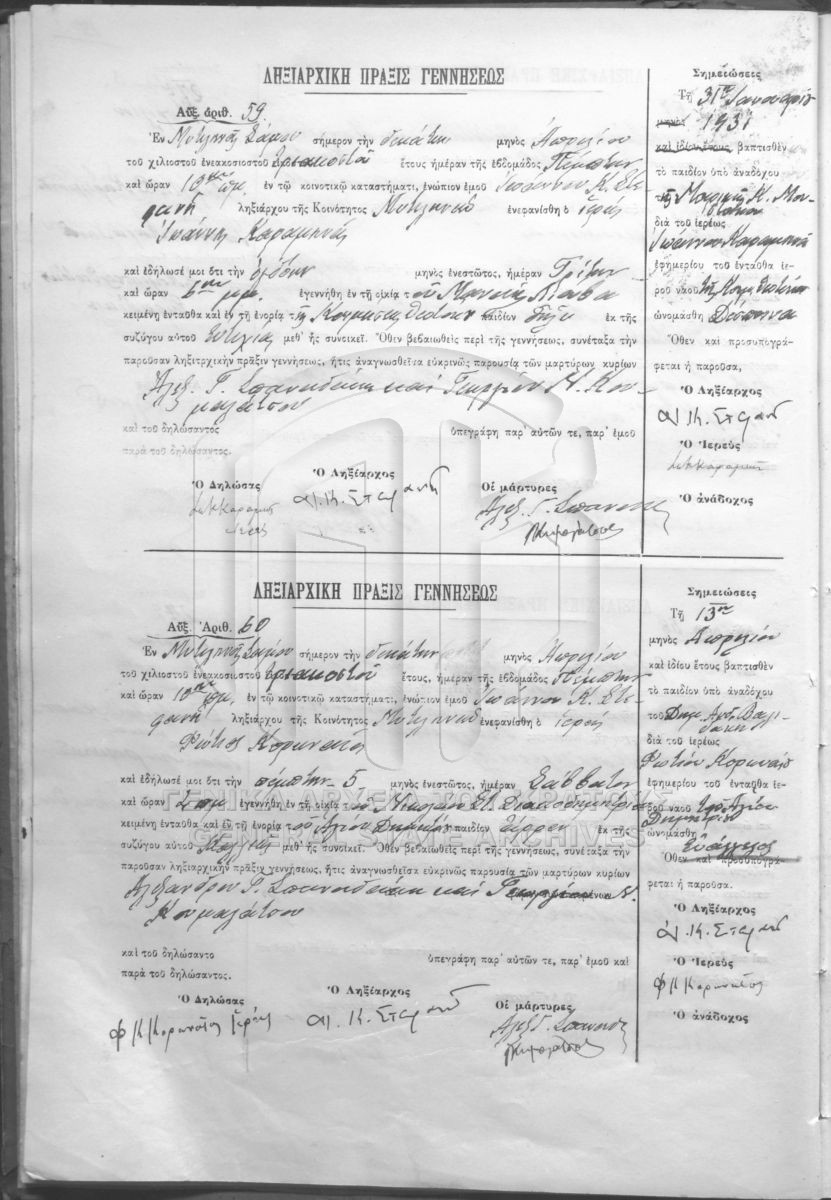 ΛΗΞΙΑΡΧΙΚΗ ΠΡΑΞΙΣ ΓΕΝΝΗΣΕΩΣ
Αὔξ. ἀριθ. 59
Ἐν Μυτιληνιοῖς Σάμου σήμερον τὴν δεκάτην μηνὸς Ἀπριλίου
τοῦ χιλιοστοῦ ἐνεακοσιοστοῦ τριακοστοῦ ἔτους ἡμέραν τῆς ἑβδομάδος Πέμπτην
καὶ ὥραν 10ην πμ. ἐν τῷ κοινοτικῷ καταστήματι, ἐνώπιον ἐμοῦ Ἰωάννου Κ. Στε-
φανῆ ληξιάρχου τῆς Κοινότητος Μυτιληνιῶν ἐνεφανίσθη ὁ ἱερεὺς
Ἰωάννης Καραμηνᾶς
καὶ ἐδήλωσέ μοι ὅτι τὴν ὀγδόην μηνὸς ἐνεστῶτος, ἡμέραν Τρίτην
καὶ ὥραν 6ην μμ. ἐγεννήθη ἐν τῇ οἰκίᾳ τοῦ
κειμένῃ ἐνταῦθα καὶ ἐν τῇ ἐνορίᾳ τῆς Κοιμήσεως Θεοτόκου παιδίον θῆλυ ἐκ τῆς
συζύγου αὐτοῦ μεθ᾽ ἧς συνοικεῖ. Ὅθεν βεβαιωθεὶς περὶ τῆς γεννήσεως, συνέταξα τὴν
παροῦσαν ληξιτρχικὴν πρᾶξιν γεννήσεως, ἥτις ἀναγνωσθεῖσα εὐκρινῶς παρουσίᾳ τῶν μαρτύρων κυρίων
Ἀλεξ. Γ. Σπανουδάκη καὶ Γεωργίου Ν. Κου-
μαλάτσου
καὶ τοῦ δηλώσαντος ὑπεγράφη παρ᾽ αὐτῶν τε, παρ᾽ ἐμοῦ
παρὰ τοῦ δηλώσαντος.
Ὁ Δηλώσας Ὁ Ληξίαρχος Οἱ μάρτυρες
Ἰ. Κ. Στεφανῆ
Σημειώσεις
Τῇ 31ῃ Ἰανουαρίου
μηνὸς 1931
καὶ ἰδίου ἔτους, βαπτισθὲν
τὸ παιδίον ὑπὸ ἀναδόχου
τῆς Μαρίας Κ.
διὰ τοῦ ἱερέως
Ἰωάννου Καραμηνᾶ
ἐφημερίου τοῦ ἐνταῦθα ἱε-
ροῦ ναοῦ τῆς Κοιμ. Θεοτόκου
ὠνομάσθη Δέσποινα
Ὅθεν καὶ προσυπογρά-
φεται ἡ παροῦσα,
Ὁ Ληξίαρχος
Ὁ Ἱερεὺς
Ὁ ἀνάδοχος
ΛΗΞΙΑΡΧΙΚΗ ΠΡΑΞΙΣ ΓΕΝΝΗΣΕΩΣ
Αὔξ. Ἀριθ. 60
Ἐν Μυτιληνιοῖς Σάμου σήμερον τὴν δεκάτην μηνὸς Ἀπριλίου
τοῦ χιλιοστοῦ ἐνεακοσιοστοῦ τριακοστοῦ ἔτους, ἡμέραν τῆς ἑβδομάδος Πέμπτην
καὶ ὥραν 10ην πμ. ἐν τῷ κοινοτικῷ καταστήματι, ἐνώπιον ἐμοῦ Ἰωάννου Κ. Στε-
φανῆ ληξιάρχου τῆς Κοινότητος Μυτιληνιῶν ἐνεφανίσθη ὁ ἱερεὺς
Φώτιος Κορωναῖος
καὶ ἐδήλωσέ μοι ὅτι τὴν πέμπτην 5 μηνὸς ἐνεστῶτος, ἡμέραν Σάββατον
καὶ ὥραν ἐγεννήθη ἐν τῇ οἰκίᾳ τοῦ Νικολάου
κειμένῃ ἐνταῦθα καὶ ἐν τῇ ἐνορίᾳ τοῦ Ἁγίου Δημητρίου παιδίον ἄρρεν ἐκ τῆς
συζύγου αὐτοῦ μεθ᾽ ἧς συνοικεῖ. Ὅθεν βεβαιωθεὶς περὶ τῆς γεννήσεως, συνέταξα τὴν
παροῦσαν ληξιαρχικὴν πρᾶξιν γεννήσεως, ἥτις ἀναγνωσθεῖσα εὐκρινῶς παρουσίᾳ τῶν μαρτύρων κυρίων
Ἀλεξάνδρου Γ. Σπανουδάκη καὶ Γεωργίου Ν.
Κουμαλάτσου
καὶ τοῦ δηλώσαντο ὑπεγράφη παρ᾽ αὐτῶν τε, παρ᾽ ἐμοῦ καὶ
παρὰ τοῦ δηλώσαντος.
Ὁ Δηλώσας Ὁ Ληξίαρχος Οἱ μάρτυρες
Φ Κ Κορωναῖος ἱερεύς
Σημειώσεις
Τῇ 13ῃ
μηνὸς Ἀπριλίου
καὶ ἰδίου ἔτους βαπτισθὲν
τὸ παιδίον ὑπὸ ἀναδόχου
τοῦ Δημ.
διὰ τοῦ ἱερέως
Φωτίου Κορωναίου
ἐφημερίου τοῦ ἐνταῦθα ἱε-
ροῦ ναοῦ τοῦ Ἁγίου
Δημητρίου
ὠνομάσθη Εὐάγγελος
Ὅθεν καὶ προσυπογρά-
φεται ἡ παροῦσα.
Ὁ Ληξίαρχος
Ὁ Ἱερεὺς
Φ Κ Κορωναῖος
Ὁ ἀνάδοχος
ΓΕΝΙΚΑ ΑΡΧΕΙΑ ΤΟΥ ΚΡΑΤΟΥΣ
GENERAL STATE ARCHIVES